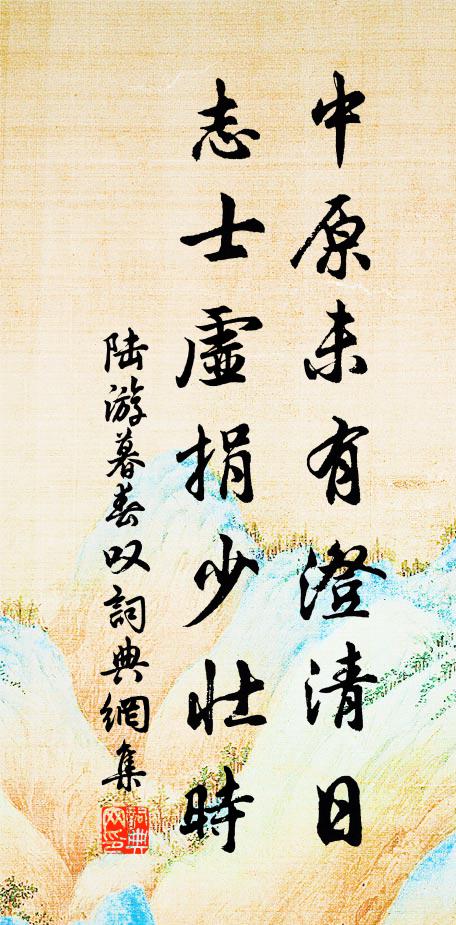 中原未有澄清日
志士虛捐少壯時
陸游暮春叹詞典網集
詞典网印